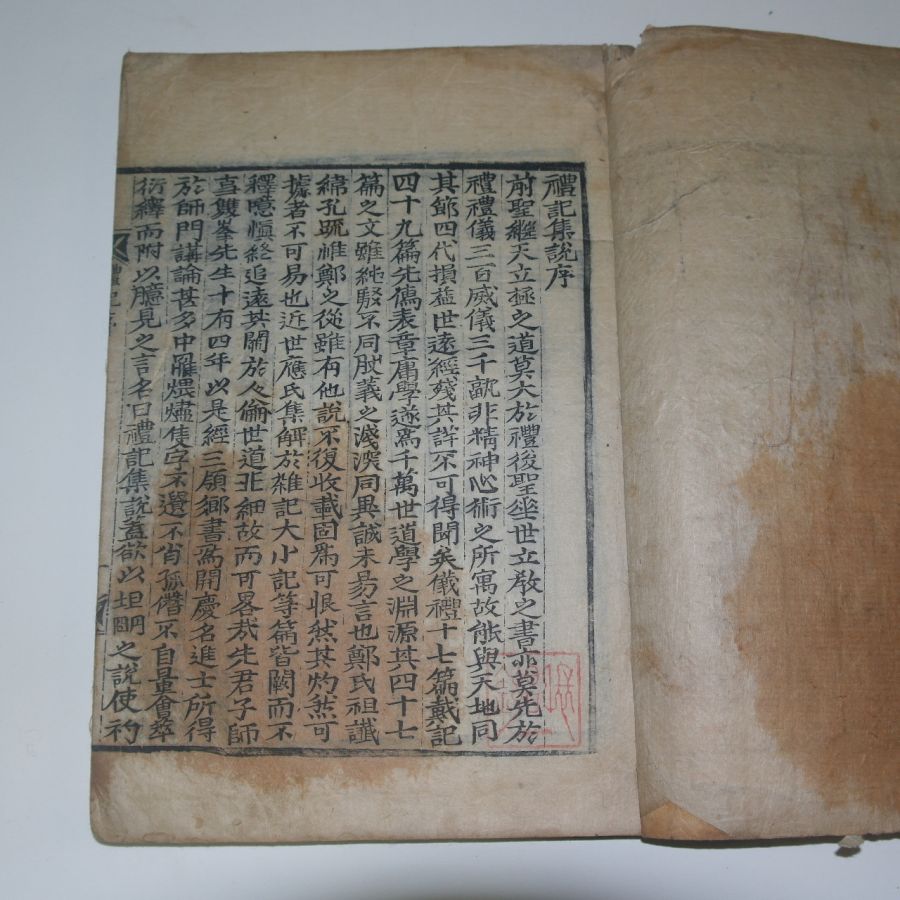 禮記集說序
前聖繼天立極之道莫大於禮後聖垂世立敎之書亦莫先於
禮禮儀三百威儀三千歟非精神心術之所寓故能與天地同
其節四代損益世遠經殘其詳不可得聞矣儀禮十七篇戴記
四十九篇先儒表章庸學遂爲千萬世道學之淵源其四十七
篇之文雖純駁不同然義之淺深同異誠未易言也鄭氏祖讖
緯孔疏惟鄭之從雖有他說不復收載固爲可恨然其灼然可
據者不可易也近世應氏集解於雜記大小記等篇皆闕而不
釋噫愼終追遠其關於人倫世道非細故而可畧哉先君子師
事雙峯先生十有四年以是經三領鄕書爲開慶名進士所得
於師門講論甚多中罹煨燼隻字不遺不肖孤僭不自量會萃
衍繹而附以臆見之言名曰禮記集說蓋欲以坦明之說使初